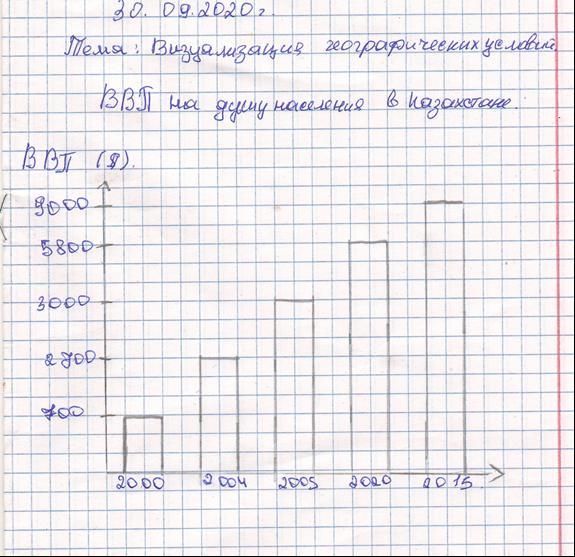 30. 09.2020 г.
Тема: Визуализация географических условий
ВВП на душу населения в Казахстане.
ВВП ($).
9000
5800
3000
2700
700
2000 2004 2005 2020 2015